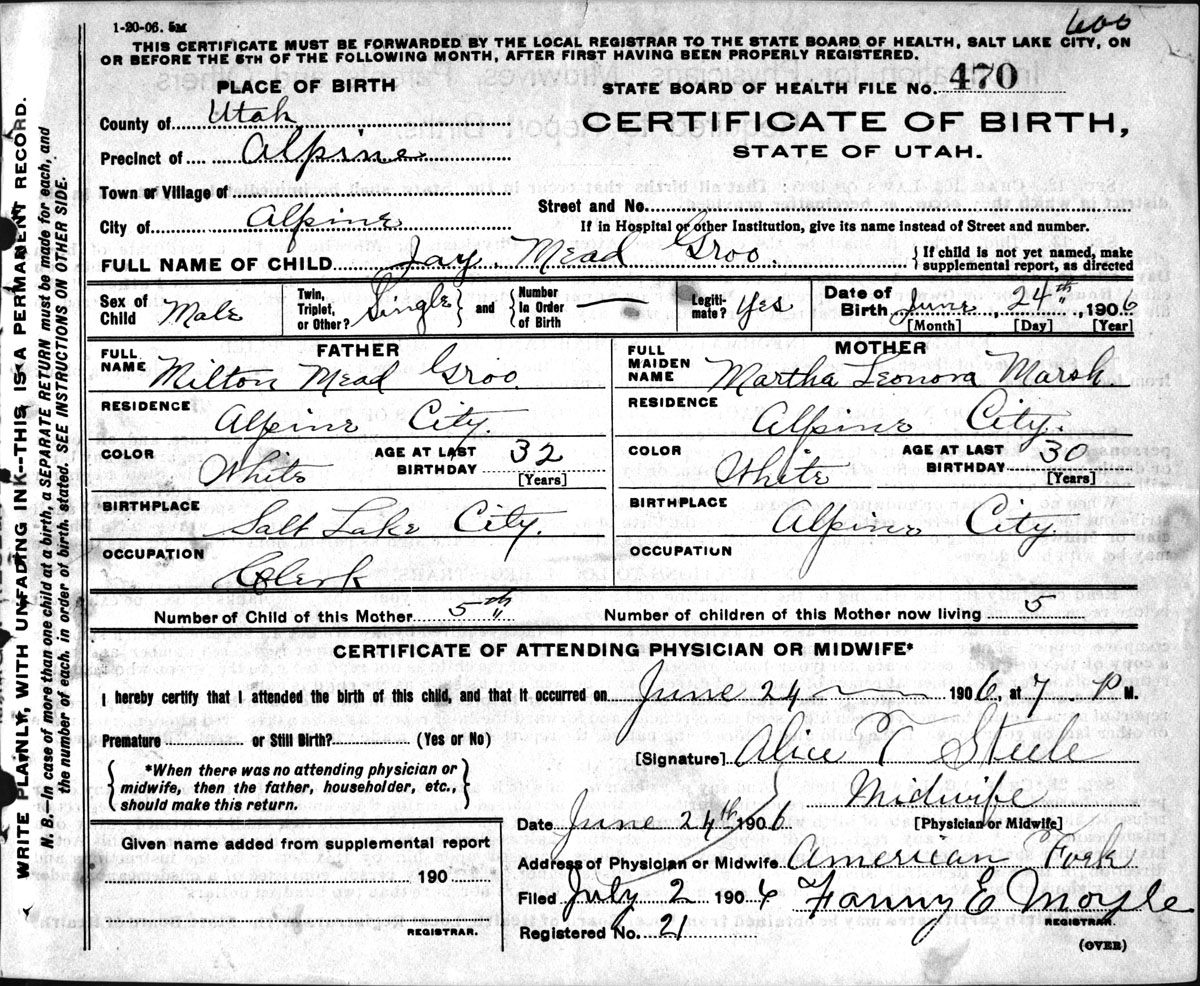 1-20-06. 5M
600
THIS CERTIFICATE MUST BE FORWARDED BY THE LOCAL REGISTRAR TO THE STATE BOARD OF HEALTH, SALT LAKE CITY, ON
OR BEFORE THE 5TH OF THE FOLLOWING MONTH, AFTER FIRST HAVING BEEN PROPERLY REGISTERED.
PLACE OF BIRTH
STATE BOARD OF HEALTH FILE NO. 470
County of Utah
CERTIFICATE OF BIRTH,
Precinct of Alpine
STATE OF UTAH.
Town or Village of
Street and No.
City of Alpine
If in Hospital or other Institution, give its name instead of Street and number.
FULL NAME OF CHILD Jay Mead Groo { If child is not yet named, make supplemental report, as directed
Sex of Child Male
Twin, Triplet, or Other? Single } and { Number in Order of Birth
Legiti- mate? Yes
Date of Birth June 24th, 1906
[Month] [Day] [Year]
FATHER
FULL NAME Milton Mead Groo
MOTHER
FULL MAIDEN NAME Martha Leonora Marsh
RESIDENCE Alpine City.
RESIDENCE Alpine City.
COLOR White AGE AT LAST BIRTHDAY 32 [Years]
COLOR White AGE AT LAST BIRTHDAY 30 [Years]
BIRTHPLACE Salt Lake City.
BIRTHPLACE Alpine City.
OCCUPATION Clerk
OCCUPATION
Number of Child of this Mother 5th
Number of children of this Mother now living 5
CERTIFICATE OF ATTENDING PHYSICIAN OR MIDWIFE*
I hereby certify that I attended the birth of this child, and that it occurred on June 24 1906, at 7 P M.
Premature or Still Birth? (Yes or No)
[Signature] Alice T Steele
{ *When there was no attending physician or
midwife, then the father, householder, etc.,
should make this return. }
Midwife
Date June 24th 1906 [Physician or Midwife]
Given name added from supplemental report
190
REGISTRAR.
Address of Physician or Midwife American Fork
Filed July 2 1906 Fanny E Moyle
REGISTRAR.
Registered No. 21
(OVER)
WRITE PLAINLY, WITH UNFADING INK--THIS IS A PERMANENT RECORD.
N. B.--In case of more than one child at a birth, a SEPARATE RETURN must be made for each, and
the number of each, in order of birth, stated. SEE INSTRUCTIONS ON OTHER SIDE.